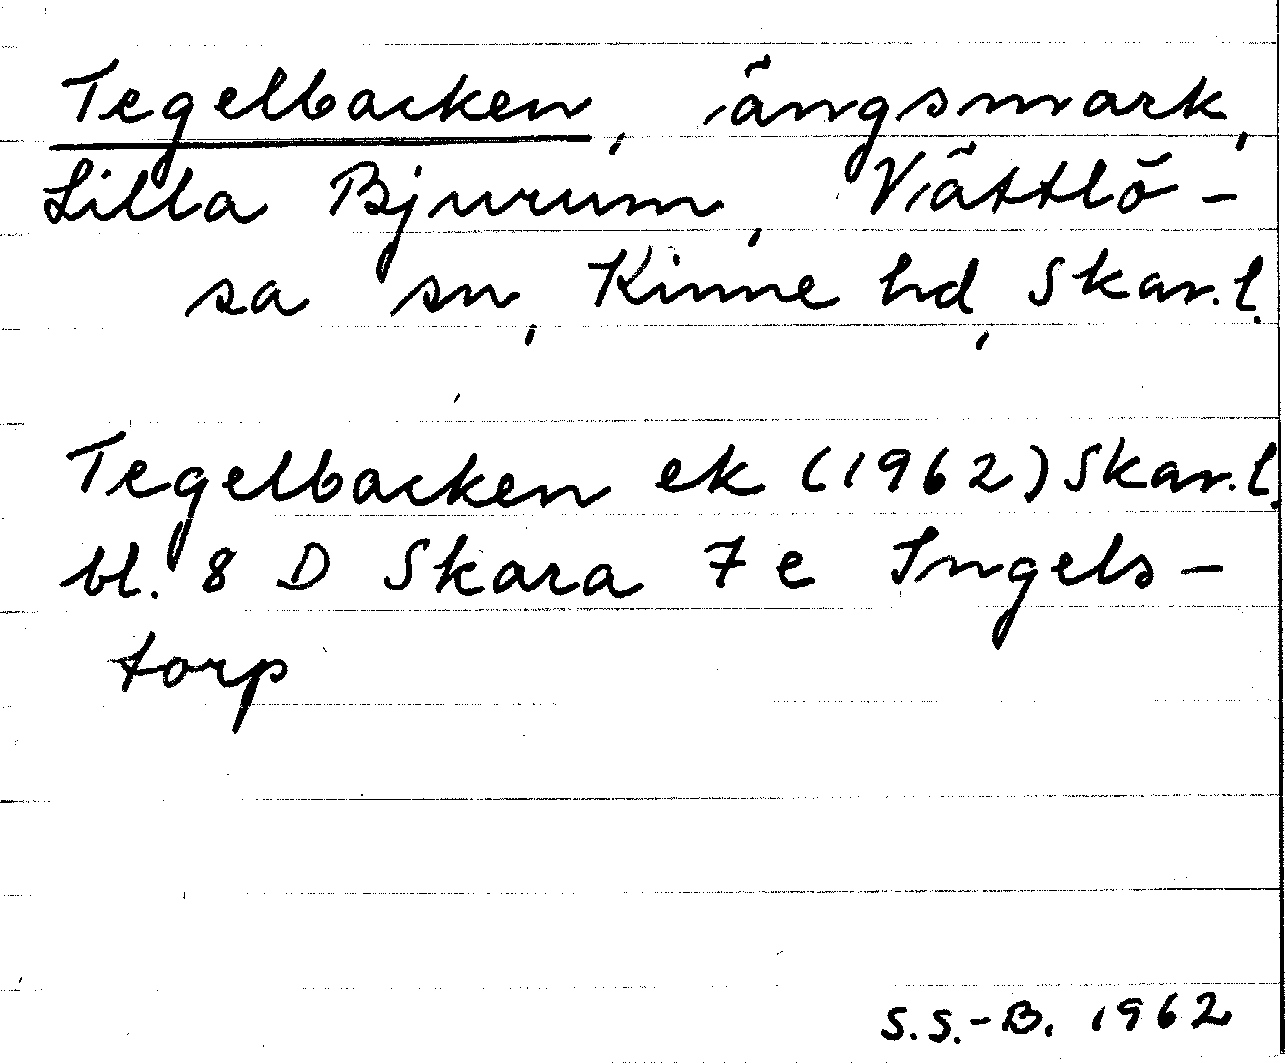 Tegelbacken, ängsmark,
Lilla Bjurum, Vättlö-
sa sn, Kinne hd, Skar.l.
Tegelbacken ek (1962) Skar.l.
bl. 8 D Skara 7 e Ingels-
torp
S.S.-B. 1962